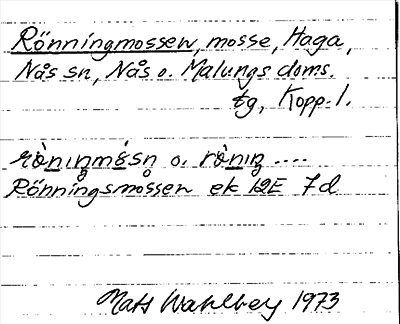 Rönningmossen, mosse, Haga,
Nås sn, Nås o. Malungs doms.
tg, Kopp. l.
rò̀nıŋmósn̥ o. rò̀nıŋ ....
Rönningsmossen ek 12E 7d
Mats Wahlberg 1973